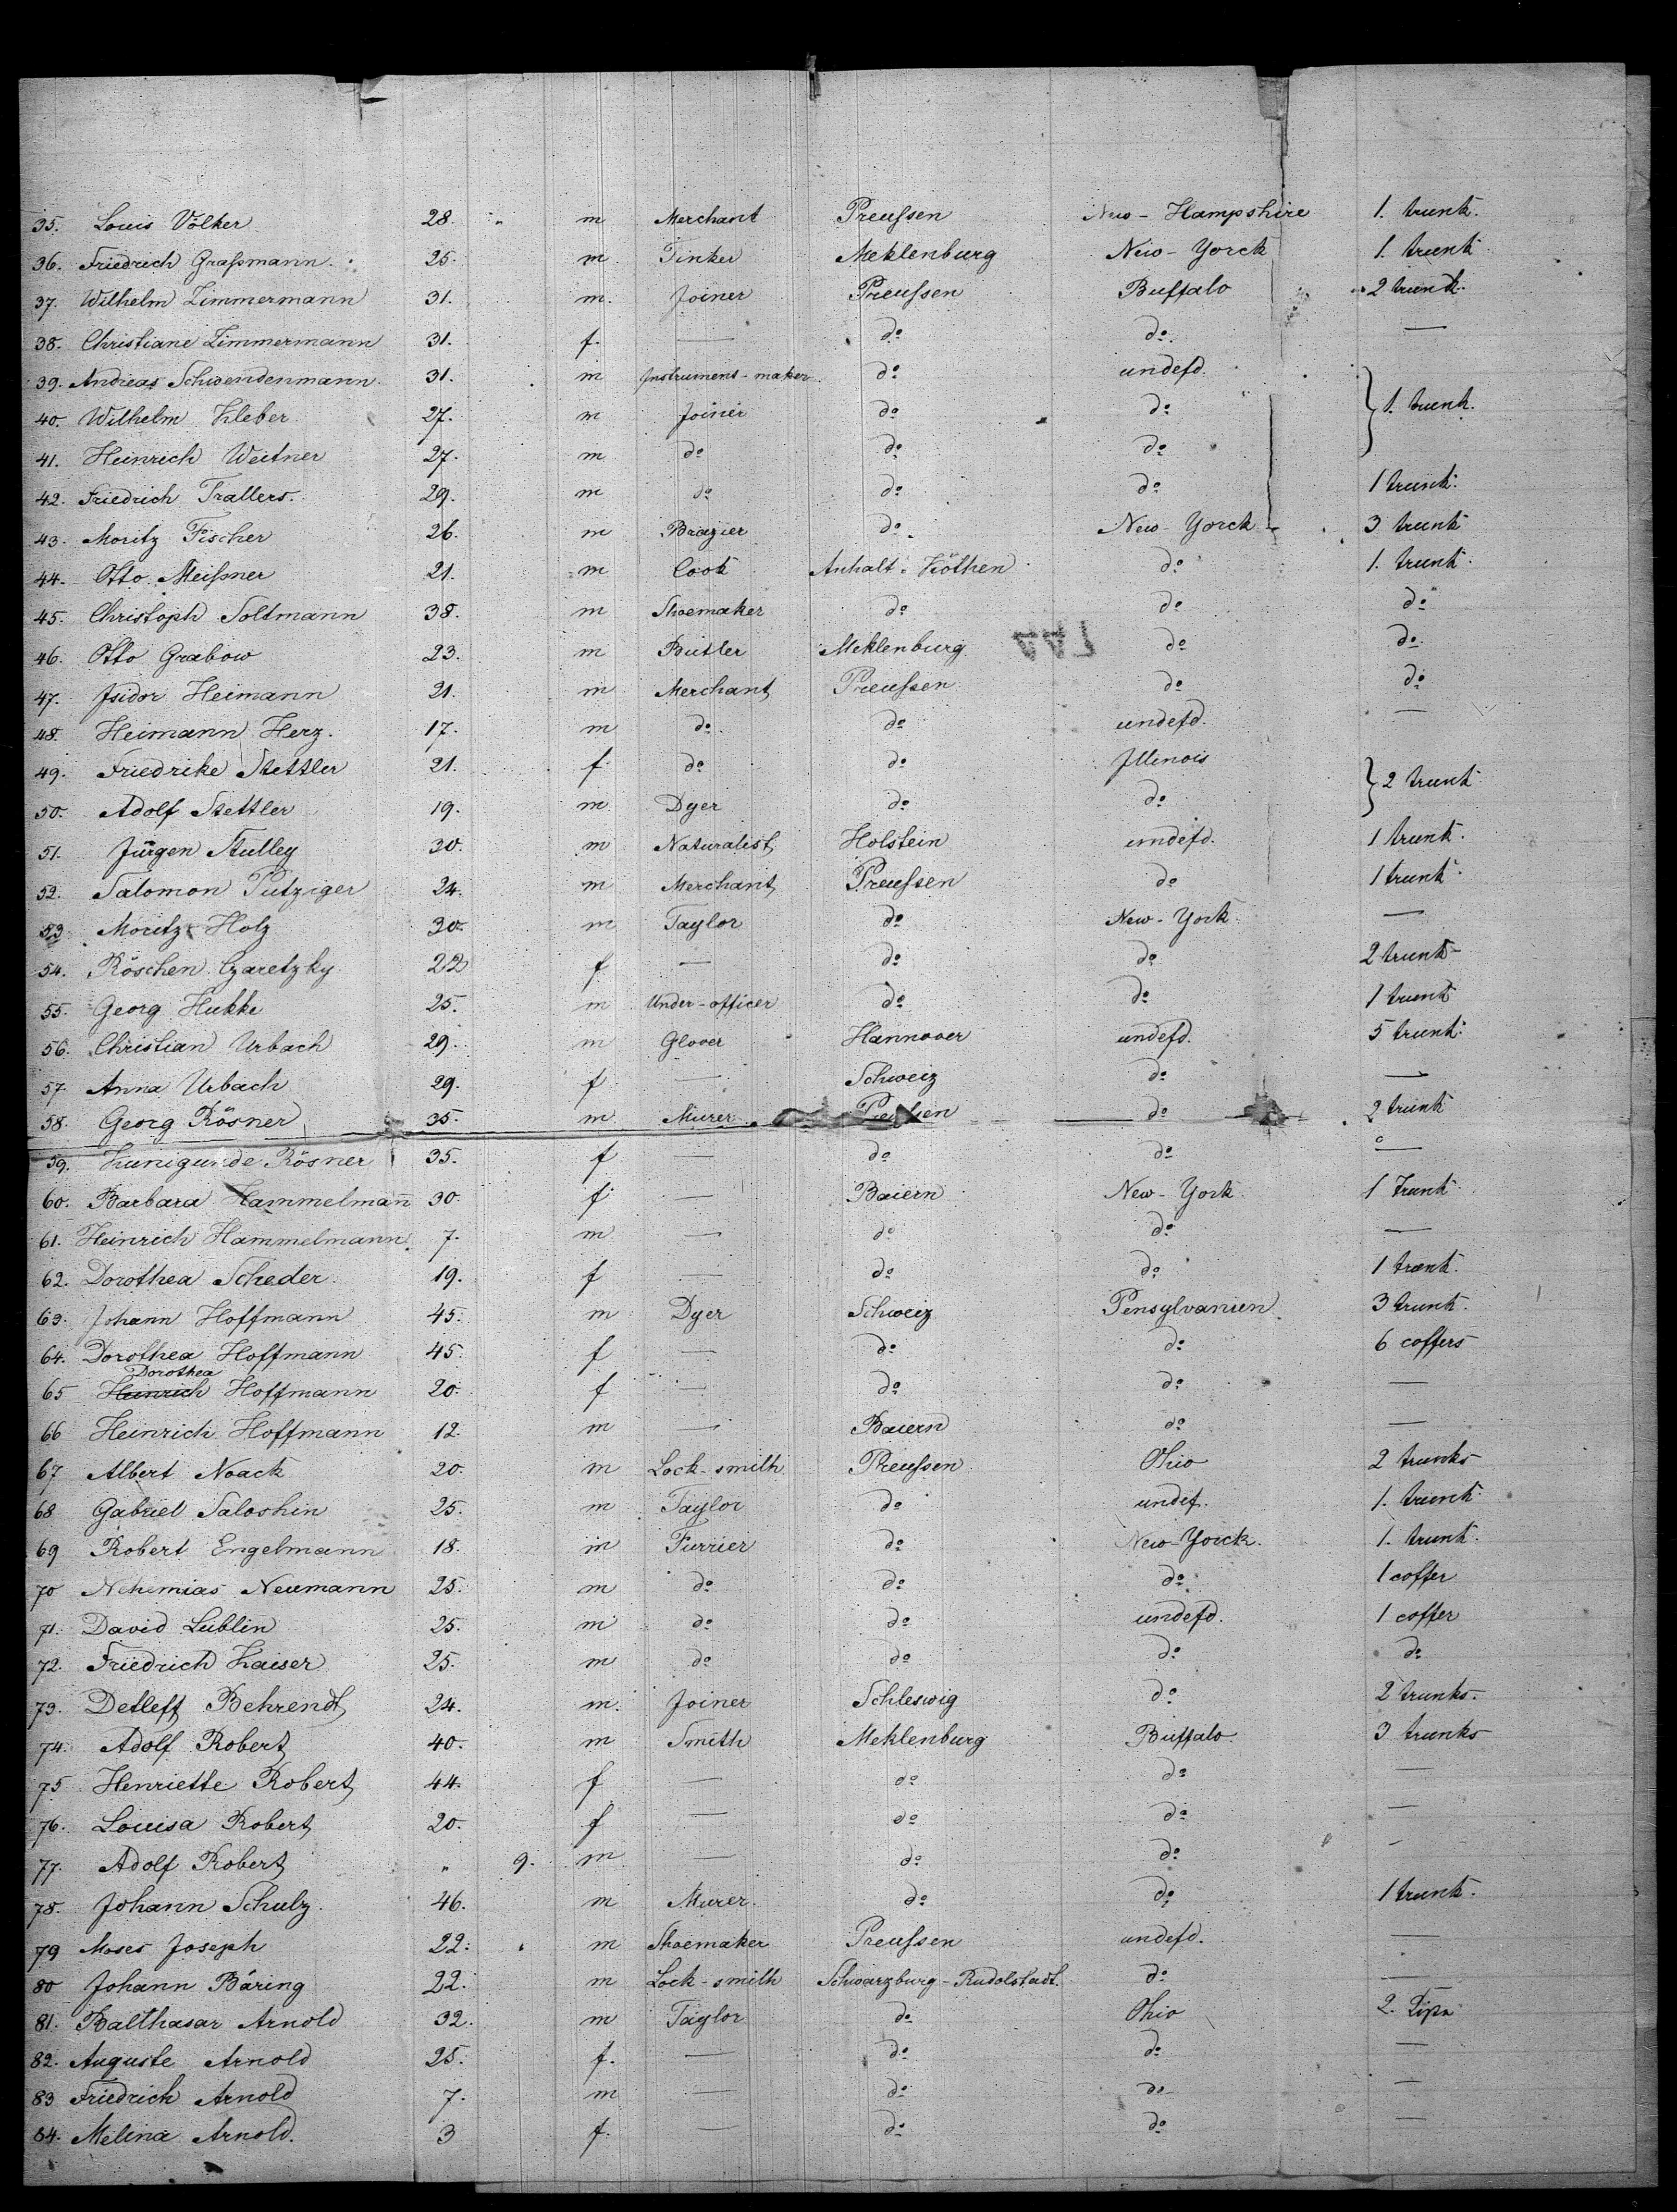 35. Louis Völker 28. „ m Merchant Preußen New-Hampshire 1. trunk.
36. Friedrich Graßmann. 25. m. Tinker Meklenburg New-Yorck 1. trunk
37. Wilhelm Zimmermann 31. m. Joiner Preußen Buffalo 2 trunk.
38. Christiane Zimmermann 31. f. — do. do. —
39. Andreas Schwendenmann. 31. m Instrumens-maker. do. undefd.
40. Wilhelm Kleber. 27. m Joiner do do } 1. trunk.
41. Heinrich Weitner 27. m do do. do
42. Friedrich Trallers. 29. m do do. do 1 trunk.
43. Moritz Fischer 26. m Brazier do. New-Yorck 3 trunk
44. Otto Meißner 21. m Cook Anhalt-Köthen do 1. trunk.
45. Christoph Soltmann 38. m Shoemaker do. do do
46. Otto Grabow 23. m Butler Meklenburg do do.
47. Isidor Heimann 21. m Merchant Preußen do do
48. Heimann Herz. 17. m do. do undefd. —
49. Friedrike Stettler 21. f. do do Illinois
50. Adolf Stettler 19. m Dyer do. do } 2 trunk
51. Jürgen Stulley 30. m Naturalist Holstein undefd. 1 trunk.
52. Salomon Putziger 24. m Merchant Preußen do 1 trunk.
53 Moritz Holz 30. m Taylor do New-York. —
54. Röschen Czaretzky 22 f — do. do. 2 trunk
55. Georg Hukke 25. m Under-officer do do 1 trunk
56. Christian Urbach 29. m Glover Hannover undefd. 5 trunk.
57. Anna Urbach 29. f. — Schweiz do —
58. Georg Rösner 35. m Murer. Preußen do 2 trunk
59. Kunigunde Rösner 35. f — do do —
60. Barbara Hammelmañ 30. f. — Baiern New-York. 1 Trunk
61. Heinrich Hammelmann. 7. m — do do —
62. Dorothea Scheder. 19. f — do. do 1 trunk.
63. Johann Hoffmann 45. m Dyer Schweiz Pensylvanien 3 trunk.
64. Dorothea Hoffmann 45. f — do. do 6 coffers
Dorothea
65 Heinrich Hoffmann 20. f — do do —
66 Heinrich Hoffmann 12. m — Baiern do —
67 Albert Noack 20. m Lock-smith Preußen Ohio 2 trunks
68 Gabriel Saloshin 25. m Taylor do undef. 1. trunk
69 Robert Engelmann 18. m Furrier do. New-Yorck. 1. trunk
70 Nehemias Neumann 25. m do. do. do. 1 coffer
71. David Lublin 25. m do. do. undefd. 1 coffer
72. Friedrich Kaiser 25. m do do do. do.
73. Detleff Behrendt 24. m. Joiner Schleswig do 2 trunks.
74. Adolf Robert 40. m Smith Meklenburg Buffalo 3 trunks
75 Henriette Robert 44. f — do do —
76. Louisa Robert 20. f — do do —
77. Adolf Robert „ 9. m — do. do. —
78. Johann Schulz. 46. m Murer. do. do 1 trunk.
79 Moses Joseph 22. m Shoemaker Preußen undefd. —
80 Johann Bäring 22. m Lock-smith Schwarzburg-Rudolstadt. do —
81. Balthasar Arnold 32. m Taylor do. Ohio 2.
82. Auguste Arnold 25. f. — do. do. —
83 Friedrich Arnold 7. m — do. do —
84. Melina Arnold. 3 f. — do. do —